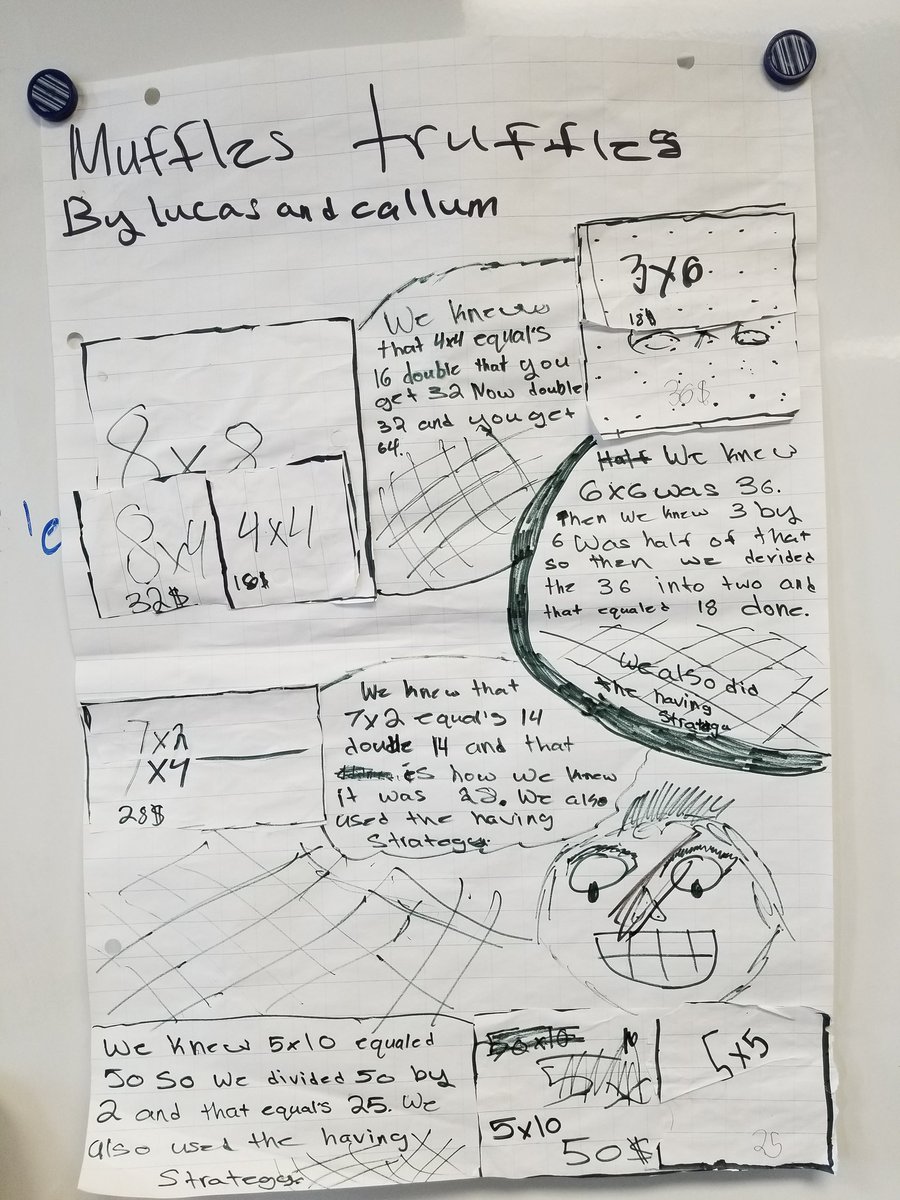 Muffles truffles
By lucas and callum
3x6
18$
36$
We knew
that 4x4 equal's
16 double that you
get 32 Now double
32 and you get
64.
8x8
8x4
32$
4x4
16$
We knew
6x6 was 36.
Then we knew 3 by
6 was half of that
so then we derided
the 36 into two and
that equaled 18 done.
We also did
the having
Strategy
7x2
7x4
28$
We knew that
7x2 equal's 14
double 14 and that
is how we knew
it was 28. We also
used the having
Strategy.
We knew 5x10 equaled
50 so we divided 50 by
2 and that equal's 25. We
also used the having
Strategy.
10
5x10
50$
5x5
25